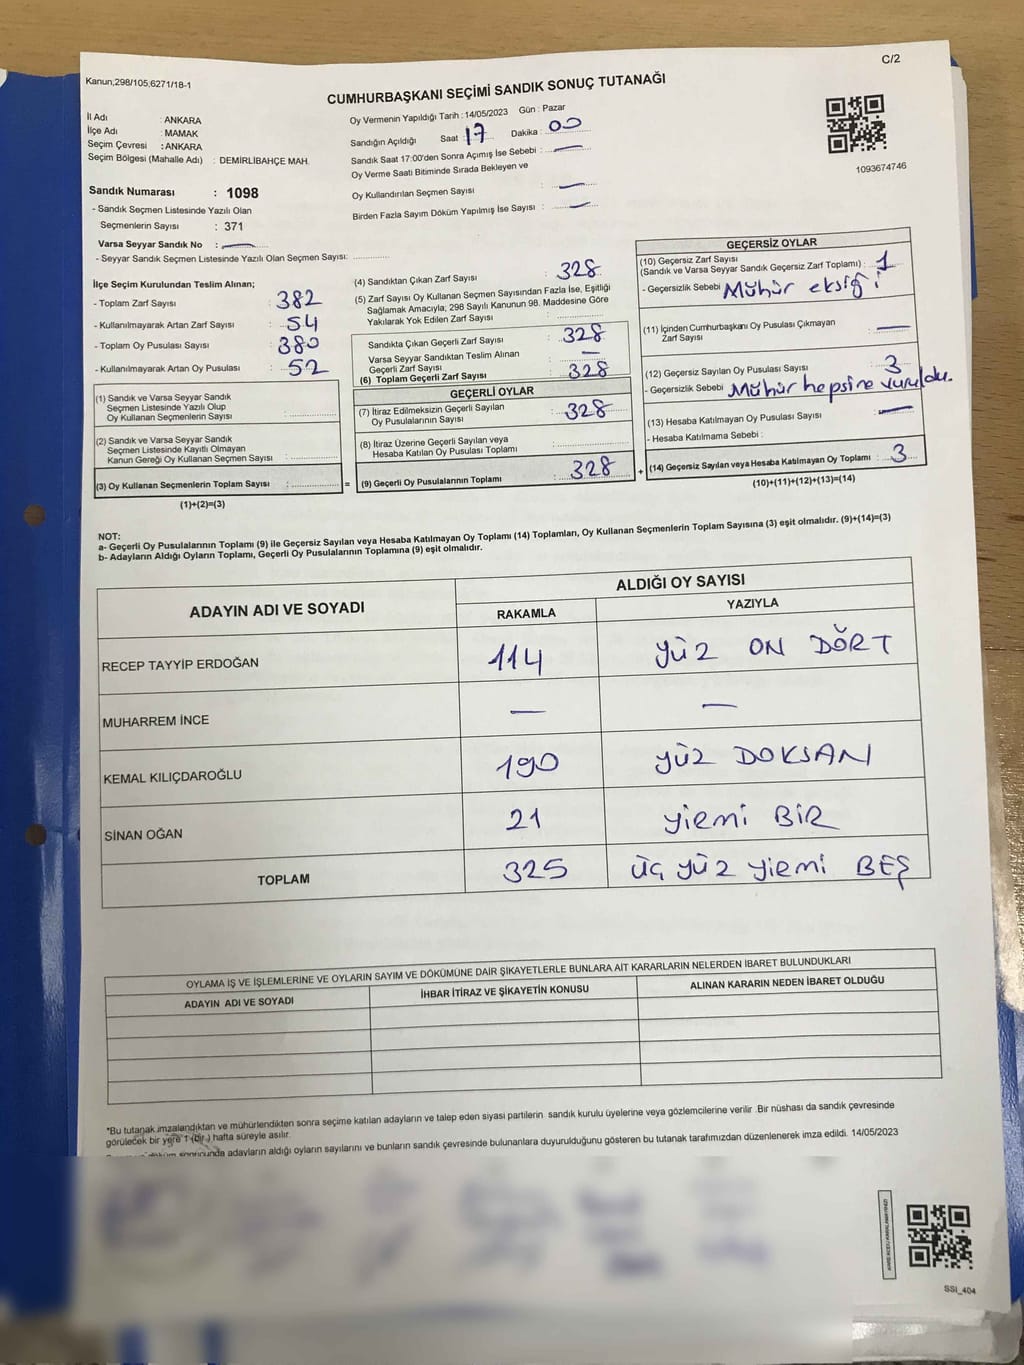 C/2
Kanun,298/105,6271/18-1
CUMHURBAŞKANI SEÇİMİ SANDIK SONUÇ TUTANAĞI
İl Adı : ANKARA
İlçe Adı : MAMAK
Seçim Çevresi : ANKARA
Seçim Bölgesi (Mahalle Adı) : DEMİRLİBAHÇE MAH.
Sandık Numarası : 1098
- Sandık Seçmen Listesinde Yazılı Olan
Seçmenlerin Sayısı : 371
Varsa Seyyar Sandık No : —
- Seyyar Sandık Seçmen Listesinde Yazılı Olan Seçmen Sayısı:
Oy Vermenin Yapıldığı Tarih : 14/05/2023 Gün : Pazar
Sandığın Açıldığı Saat : 17 Dakika : 00
Sandık Saat 17:00'den Sonra Açımış İse Sebebi : —
Oy Verme Saati Bitiminde Sırada Bekleyen ve
Oy Kullandırılan Seçmen Sayısı : —
Birden Fazla Sayım Döküm Yapılmış İse Sayısı : —
1093674746
İlçe Seçim Kurulundan Teslim Alınan;
- Toplam Zarf Sayısı : 382
- Kullanılmayarak Artan Zarf Sayısı : 54
- Toplam Oy Pusulası Sayısı : 380
- Kullanılmayarak Artan Oy Pusulası : 52
(1) Sandık ve Varsa Seyyar Sandık
Seçmen Listesinde Yazılı Olup
Oy Kullanan Seçmenlerin Sayısı :
(2) Sandık ve Varsa Seyyar Sandık
Seçmen Listesinde Kayıtlı Olmayan
Kanun Gereği Oy Kullanan Seçmen Sayısı :
(3) Oy Kullanan Seçmenlerin Toplam Sayısı : =
(1)+(2)=(3)
(4) Sandıktan Çıkan Zarf Sayısı : 328
(5) Zarf Sayısı Oy Kullanan Seçmen Sayısından Fazla İse, Eşitliği
Sağlamak Amacıyla; 298 Sayılı Kanunun 98. Maddesine Göre
Yakılarak Yok Edilen Zarf Sayısı :
Sandıkta Çıkan Geçerli Zarf Sayısı : 328
Varsa Seyyar Sandıktan Teslim Alınan
Geçerli Zarf Sayısı : —
(6) Toplam Geçerli Zarf Sayısı : 328
GEÇERLİ OYLAR
(7) İtiraz Edilmeksizin Geçerli Sayılan
Oy Pusulalarının Sayısı : 328
(8) İtiraz Üzerine Geçerli Sayılan veya
Hesaba Katılan Oy Pusulası Toplamı :
(9) Geçerli Oy Pusulalarının Toplamı : 328 +
GEÇERSİZ OYLAR
(10) Geçersiz Zarf Sayısı
(Sandık ve Varsa Seyyar Sandık Geçersiz Zarf Toplamı) : 1
- Geçersizlik Sebebi Mühür eksiği
(11) İçinden Cumhurbaşkanı Oy Pusulası Çıkmayan
Zarf Sayısı : —
(12) Geçersiz Sayılan Oy Pusulası Sayısı : 3
- Geçersizlik Sebebi Mühür hepsine vuruldu.
(13) Hesaba Katılmayan Oy Pusulası Sayısı : —
- Hesaba Katılmama Sebebi :
(14) Geçersiz Sayılan veya Hesaba Katılmayan Oy Toplamı : 3
(10)+(11)+(12)+(13)=(14)
NOT:
a- Geçerli Oy Pusulalarının Toplamı (9) ile Geçersiz Sayılan veya Hesaba Katılmayan Oy Toplamı (14) Toplamları, Oy Kullanan Seçmenlerin Toplam Sayısına (3) eşit olmalıdır. (9)+(14)=(3)
b- Adayların Aldığı Oyların Toplamı, Geçerli Oy Pusulalarının Toplamına (9) eşit olmalıdır.
ADAYIN ADI VE SOYADI
ALDIĞI OY SAYISI
RAKAMLA YAZIYLA
RECEP TAYYİP ERDOĞAN 114 yüz ON DÖRT
MUHARREM İNCE — —
KEMAL KILIÇDAROĞLU 190 yüz DOKSAN
SİNAN OĞAN 21 yiRmi BİR
TOPLAM 325 üç yüz yiRmi BEŞ
OYLAMA İŞ VE İŞLEMLERİNE VE OYLARIN SAYIM VE DÖKÜMÜNE DAİR ŞİKAYETLERLE BUNLARA AİT KARARLARIN NELERDEN İBARET BULUNDUKLARI
ADAYIN ADI VE SOYADI İHBAR İTİRAZ VE ŞİKAYETİN KONUSU ALINAN KARARIN NEDEN İBARET OLDUĞU
*Bu tutanak imzalandıktan ve mühürlendikten sonra seçime katılan adayların ve talep eden siyasi partilerin sandık kurulu üyelerine veya gözlemcilerine verilir .Bir nüshası da sandık çevresinde
görülecek bir yere 1 (bir ) hafta süreyle asılır.
sonucunda adayların aldığı oyların sayılarını ve bunların sandık çevresinde bulunanlara duyurulduğunu gösteren bu tutanak tarafımızdan düzenlenerek imza edildi. 14/05/2023
SSI_404